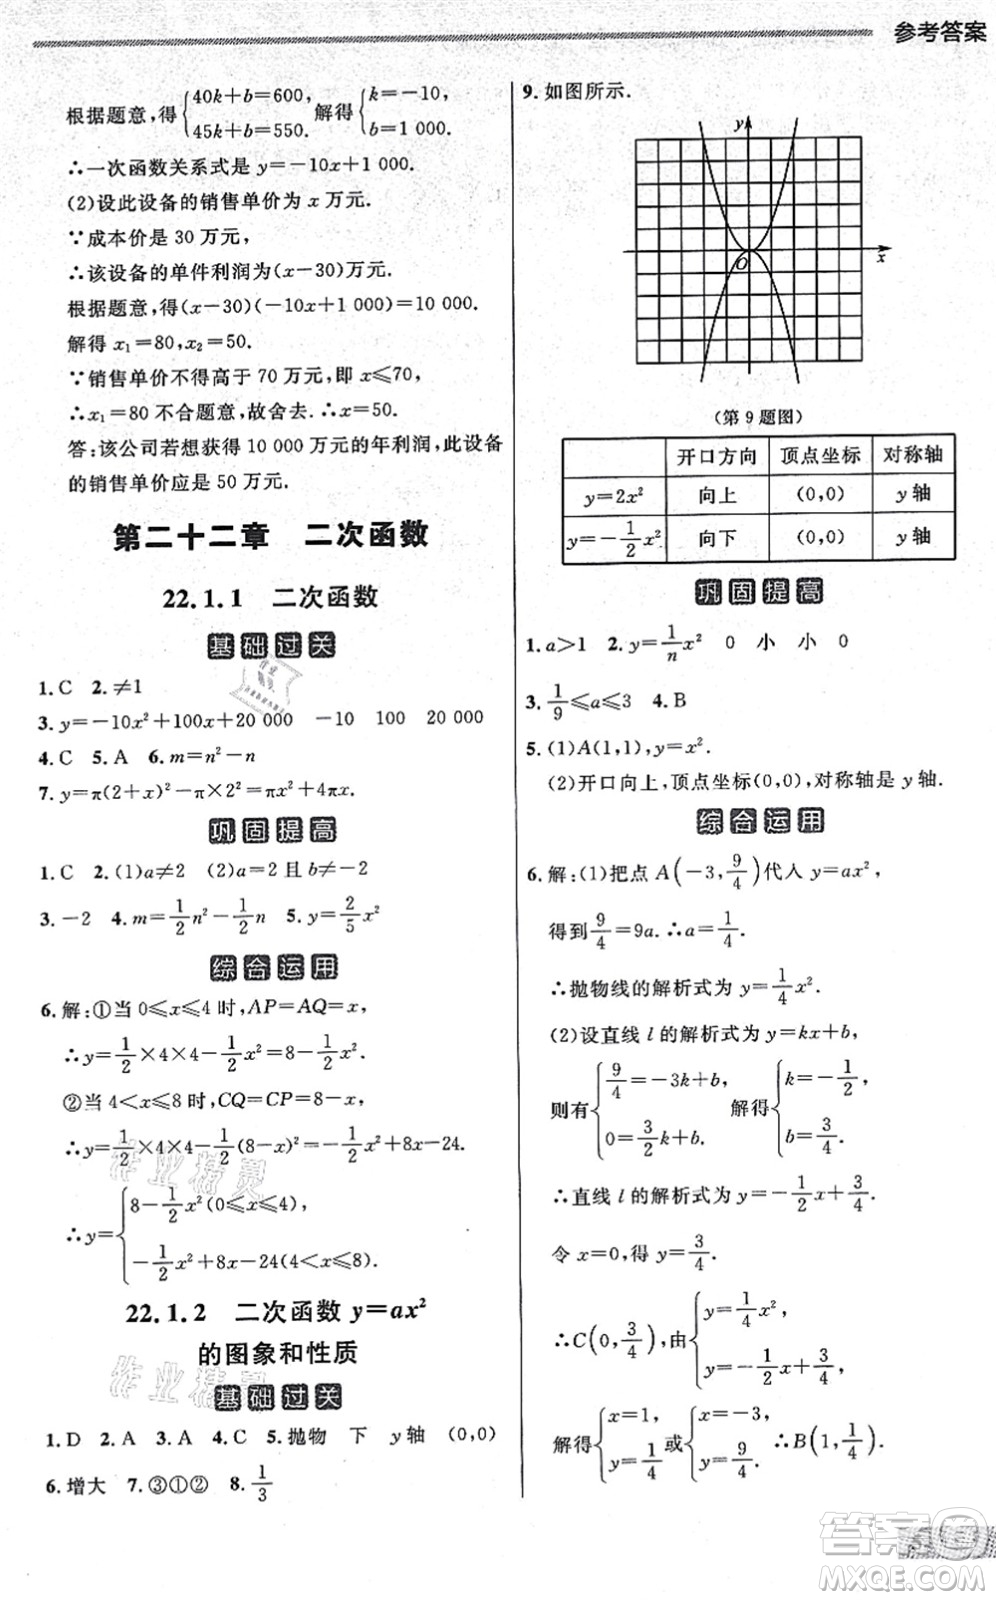 参考答案
根据题意，得{40k+b=600, 45k+b=550. 解得{k=-10, b=1 000.
∴一次函数关系式是 y=-10x+1 000.
(2)设此设备的销售单价为 x 万元.
∵成本价是 30 万元，
∴该设备的单件利润为(x-30)万元.
根据题意，得(x-30)(-10x+1 000)=10 000.
解得 x₁=80,x₂=50.
∵销售单价不得高于 70 万元，即 x≤70，
∴x₁=80 不合题意，故舍去.∴x=50.
答:该公司若想获得 10 000 万元的年利润，此设备
的销售单价应是 50 万元.
第二十二章 二次函数
22.1.1 二次函数
基础过关
1.C 2.≠1
3.y=-10x²+100x+20 000 -10 100 20 000
4.C 5.A 6.m=n²-n
7.y=π(2+x)²-π×2²=πx²+4πx.
巩固提高
1.C 2.(1)a≠2 (2)a=2且 b≠-2
3.-2 4.m=1/2n²-1/2n 5.y=2/5x²
综合运用
6.解:①当 0≤x≤4 时,AP=AQ=x,
∴y=1/2×4×4-1/2x²=8-1/2x².
②当 4<x≤8 时,CQ=CP=8-x,
∴y=1/2×4×4-1/2(8-x)²=-1/2x²+8x-24.
∴y={8-1/2x²(0≤x≤4), -1/2x²+8x-24(4<x≤8).
22.1.2 二次函数 y=ax²
的图象和性质
基础过关
1.D 2.A 3.A 4.C 5.抛物 下 y轴 (0,0)
6.增大 7.③①② 8.1/3
9.如图所示.
y
O
x
(第 9 题图)
开口方向 顶点坐标 对称轴
y=2x² 向上 (0,0) y 轴
y=-1/2x² 向下 (0,0) y 轴
巩固提高
1.a>1 2.y=1/nx² 0 小 小 0
3.1/9≤a≤3 4.B
5.(1)A(1,1),y=x².
(2)开口向上,顶点坐标(0,0),对称轴是 y 轴.
综合运用
6.解:(1)把点 A(-3,9/4)代入 y=ax²,
得到9/4=9a.∴a=1/4.
∴抛物线的解析式为 y=1/4x².
(2)设直线 l 的解析式为 y=kx+b,
则有{9/4=-3k+b, 0=3/2k+b. 解得{k=-1/2, b=3/4.
∴直线 l 的解析式为 y=-1/2x+3/4.
令 x=0,得 y=3/4.
∴C(0,3/4),由{y=1/4x², y=-1/2x+3/4,
解得{x=1, y=1/4 或{x=-3, y=9/4 ∴B(1,1/4).
作业精灵
作业精灵
答案
MXQE.COM